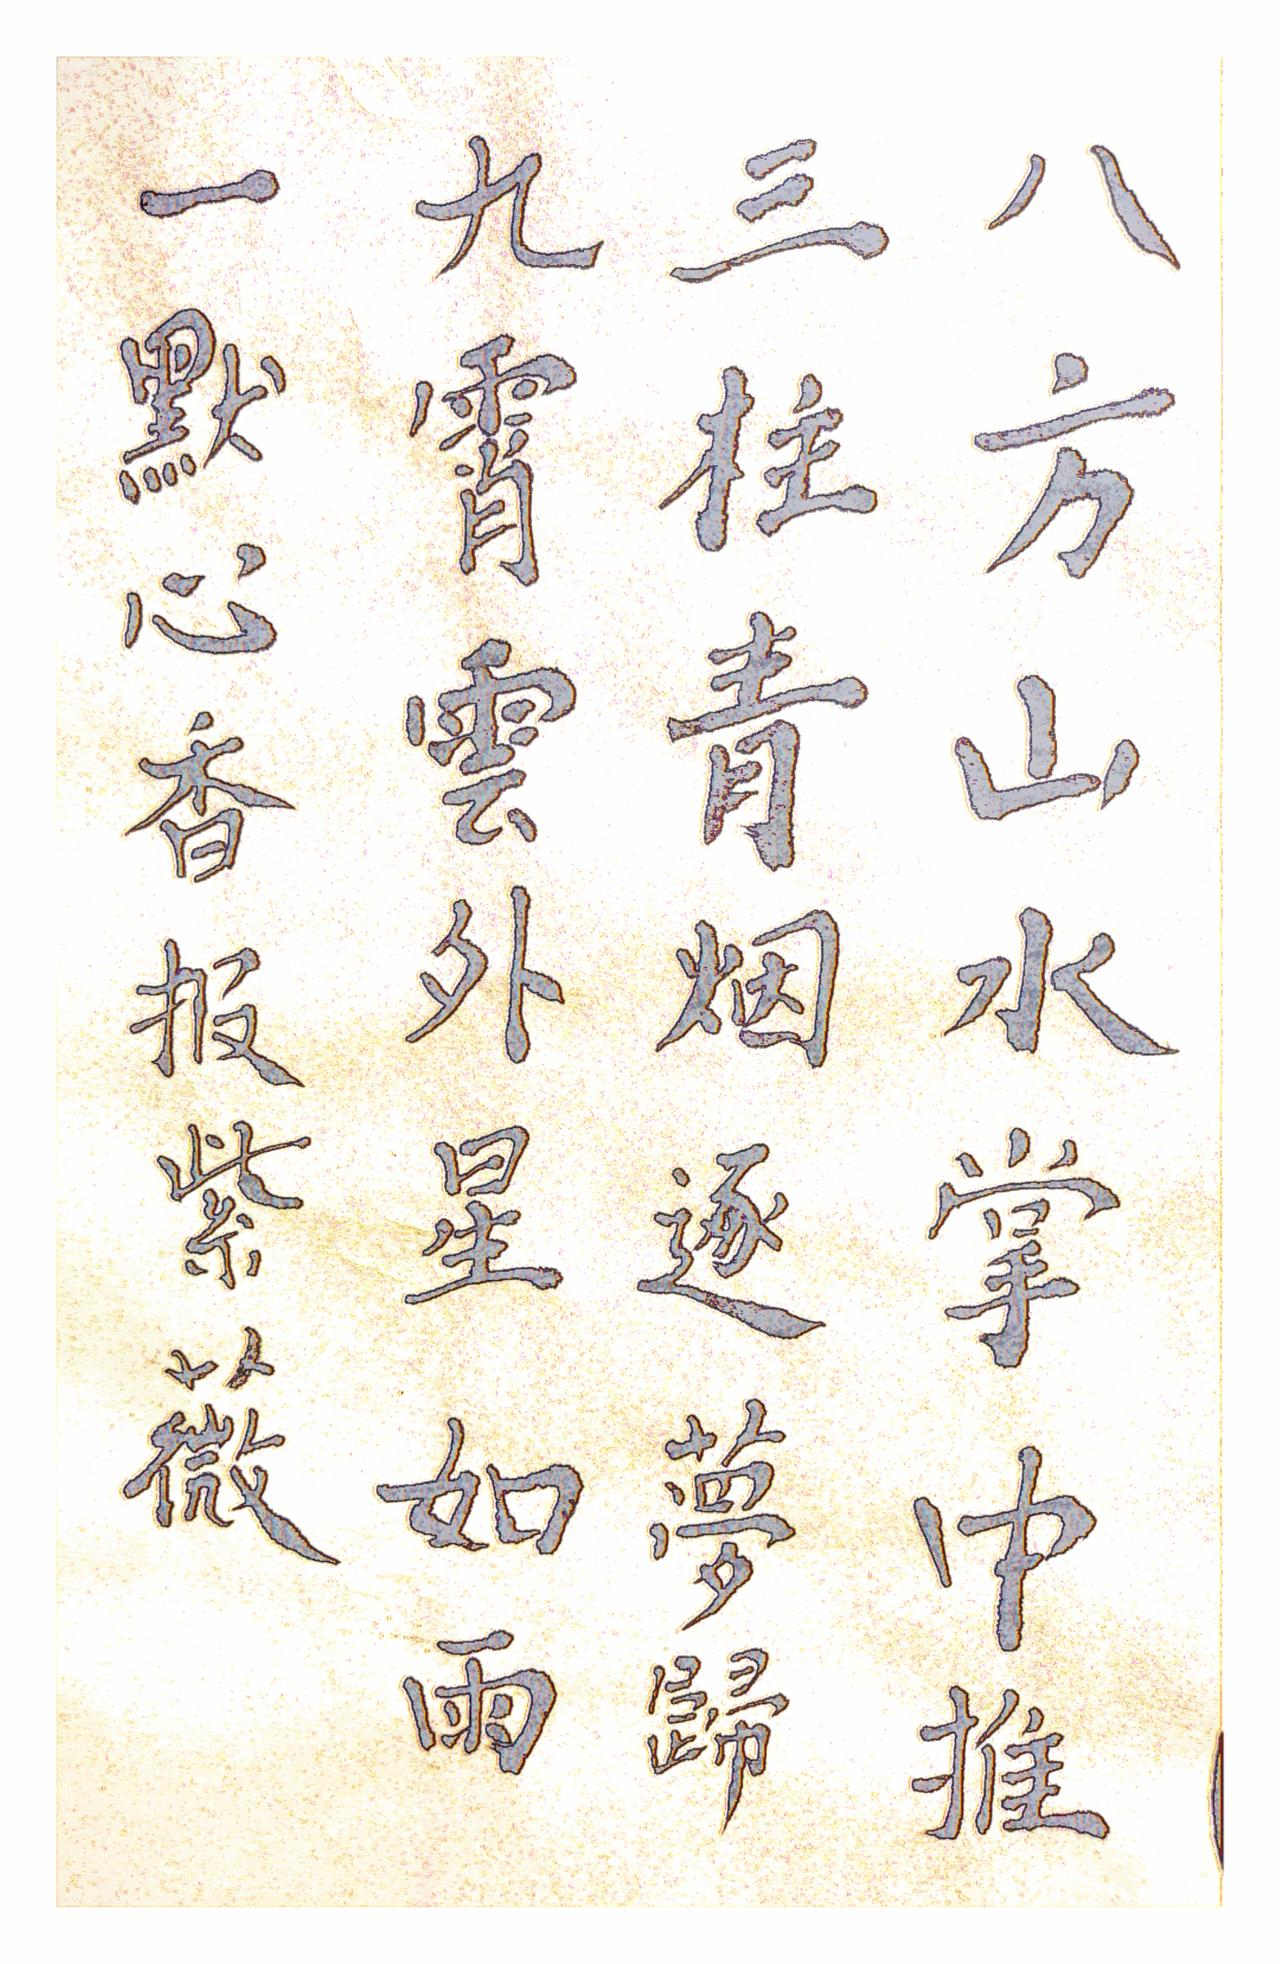 八方山水掌中推
三柱青烟逐夢歸
九霄雲外星如雨
一默心香报紫薇